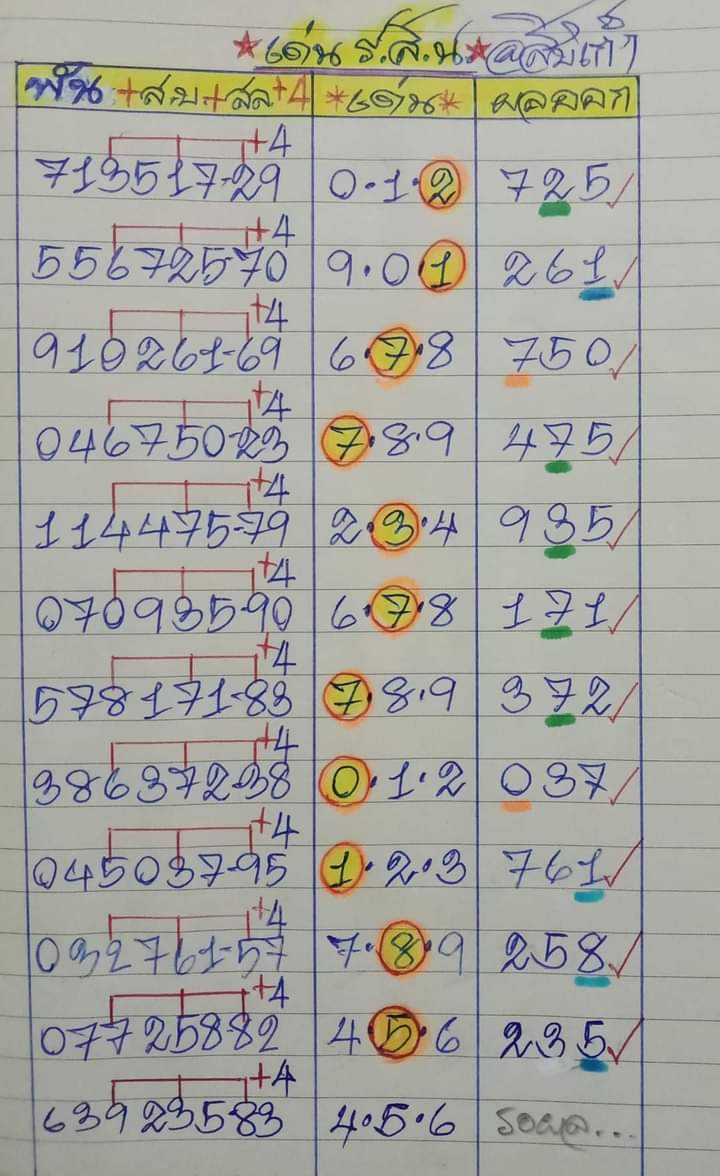 ★เด่น ร.ส.น★
พัน +ส.บ.+สล+4 *เด่น* ผลออก
+4
713517-29 0·1·2 725✓
+4
55672570 9·0·1 261✓
+4
910261-69 6·7·8 750✓
+4
04675023 7·8·9 475✓
+4
114475-79 2·3·4 935✓
+4
07093590 6·7·8 171✓
+4
578171-83 7·8·9 372✓
+4
38637238 0·1·2 037✓
+4
045037-95 1·2·3 761✓
+4
032761-57 7·8·9 258✓
+4
07725882 4·5·6 235✓
+4
63923583 4·5·6 รอผล...